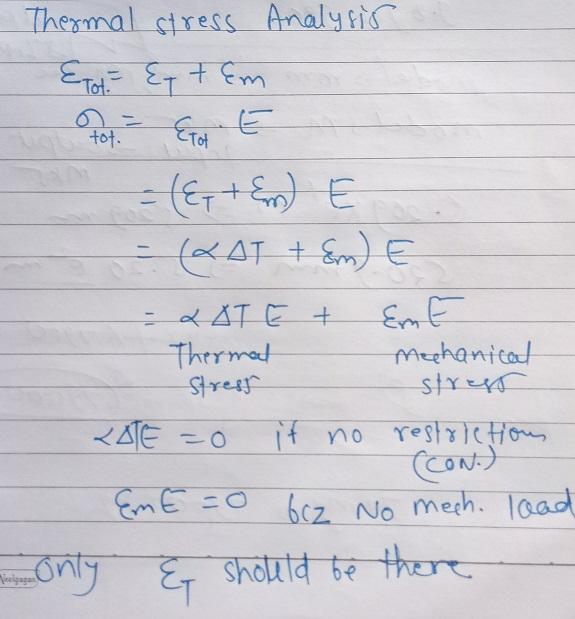 Thermal stress Analysis
ε_Tot. = ε_T + ε_m
σ_tot. = ε_Tot . E
= (ε_T + ε_m) E
= (α ΔT + ε_m) E
= α ΔT E + ε_m E
Thermal mechanical
stress stress
αΔTE = 0 if no restriction
(CON.)
ε_m E = 0 bcz No mech. load
Only ε_T should be there
Neelgagan